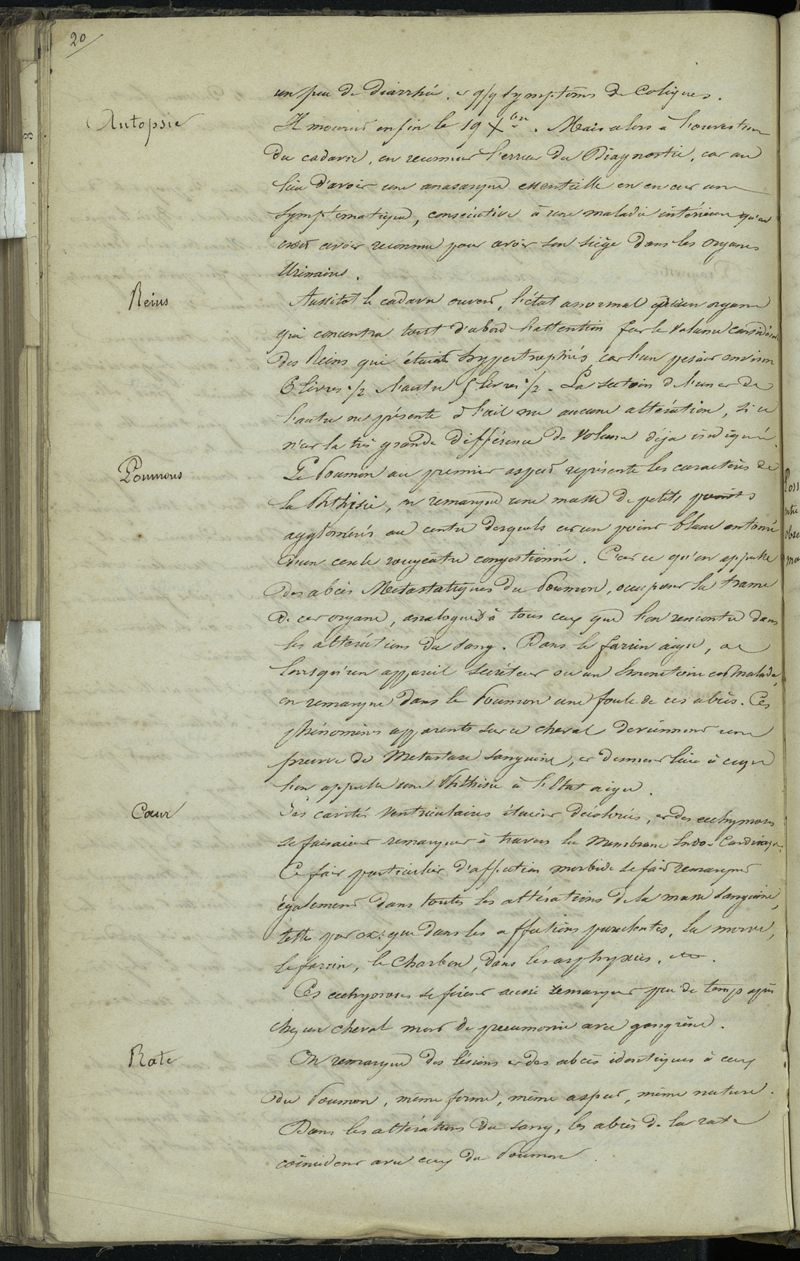 20
un peu de diarrhée, et qq symptômes de coliques.
Autopsie
Il mourut enfin le 19 Xbre. Mais alors à l'ouverture
du cadavre, on reconnut l'erreur du Diagnostic, car au
lieu d'avoir une anasarque essentielle on en eut une
symptomatique, consécutive à une maladie intérieure qu'on
avoir reconnue pour avoir son siège dans les organes
Urinaires.
Reins
Aussitôt le cadavre ouvert, l'état anormal organe
qui concentra tout d'abord l'attention fut le volume considérable
des Reins qui étaient hypertrophiés car l'un pesait environ
6 livres 1/2 l'autre 5 livres 1/2. La section de l'un et de
l'autre ne présente à l'œil nu aucune altération, si ce
n'est la très grande différence de volume déja indiquée.
Poumons
Le Poumon au premier aspect représente les caractères de
la Phthisie, on remarque une masse de petits points
agglomérés au centre desquels est un point blanc entouré
d'un cercle rougeatre congestionné. C'est ce qu'on appelle
des abcès Metastatiques du Poumon, occupant la trame
de cet organe, analogues à tous ceux que l'on rencontre dans
les altérations du sang. Dans le farcin aigu, ou
lorsqu'un appareil secréteur ou un émonctoire est malade,
on remarque dans le Poumon une foule de ces abcès. Ces
phénomènes apparents sur ce cheval deviennent une
preuve de Metastase sanguine, et donnent lieu à ce que
l'on appelle une Phthisie à l'état aigu.
Cœur
Les cavités Ventriculaires étaient décolorées, et des ecchymoses
se faisaient remarquer à travers la Membrane Endo-Cardiaque.
Ce fait particulier d'affection morbide se fait remarquer
également dans toutes les altérations de la masse sanguine,
telle par ex: que dans les affections purulentes, la morve,
le farcin, le charbon, dans les asphyxies, etc.
Ces ecchymoses se firent aussi remarquer peu de temps après
chez un cheval mort de pneumonie avec gangrène.
Rate
On remarque des lésions et des abcès identiques à ceux
du Poumon, même forme, même aspect, même nature.
Dans les altérations du sang, les abcès de la rate
coïncident avec ceux du Poumon.